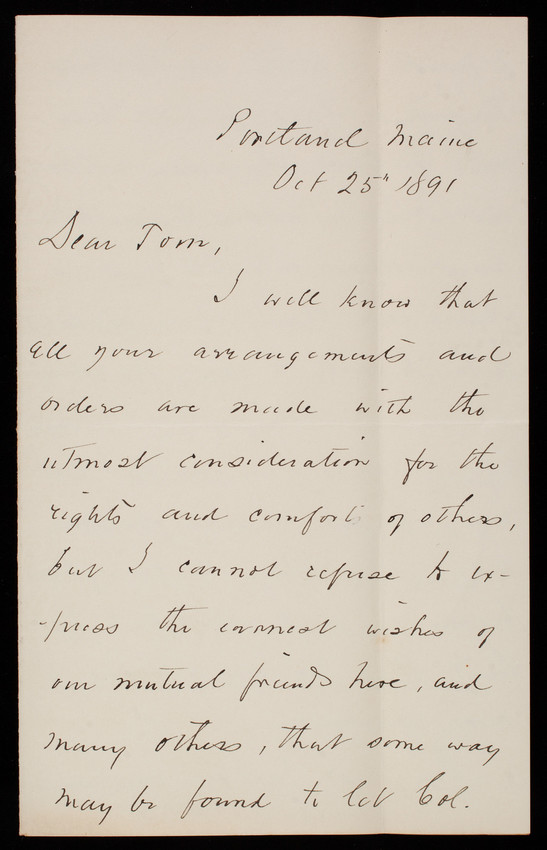 Portland Maine
Oct 25" 1891
Dear Tom,
I well know that
all your arrangements and
orders are made with the
utmost consideration for the
rights and comforts of others,
but I cannot refuse to ex-
-press the earnest wishes of
our mutual friends here, and
many others, that some way
may be found to let Col.